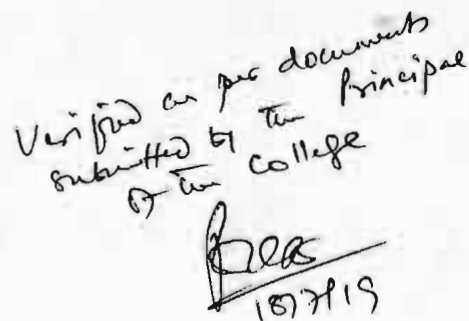 Verified as per documents
submitted by the Principal
of the college
18/7/19